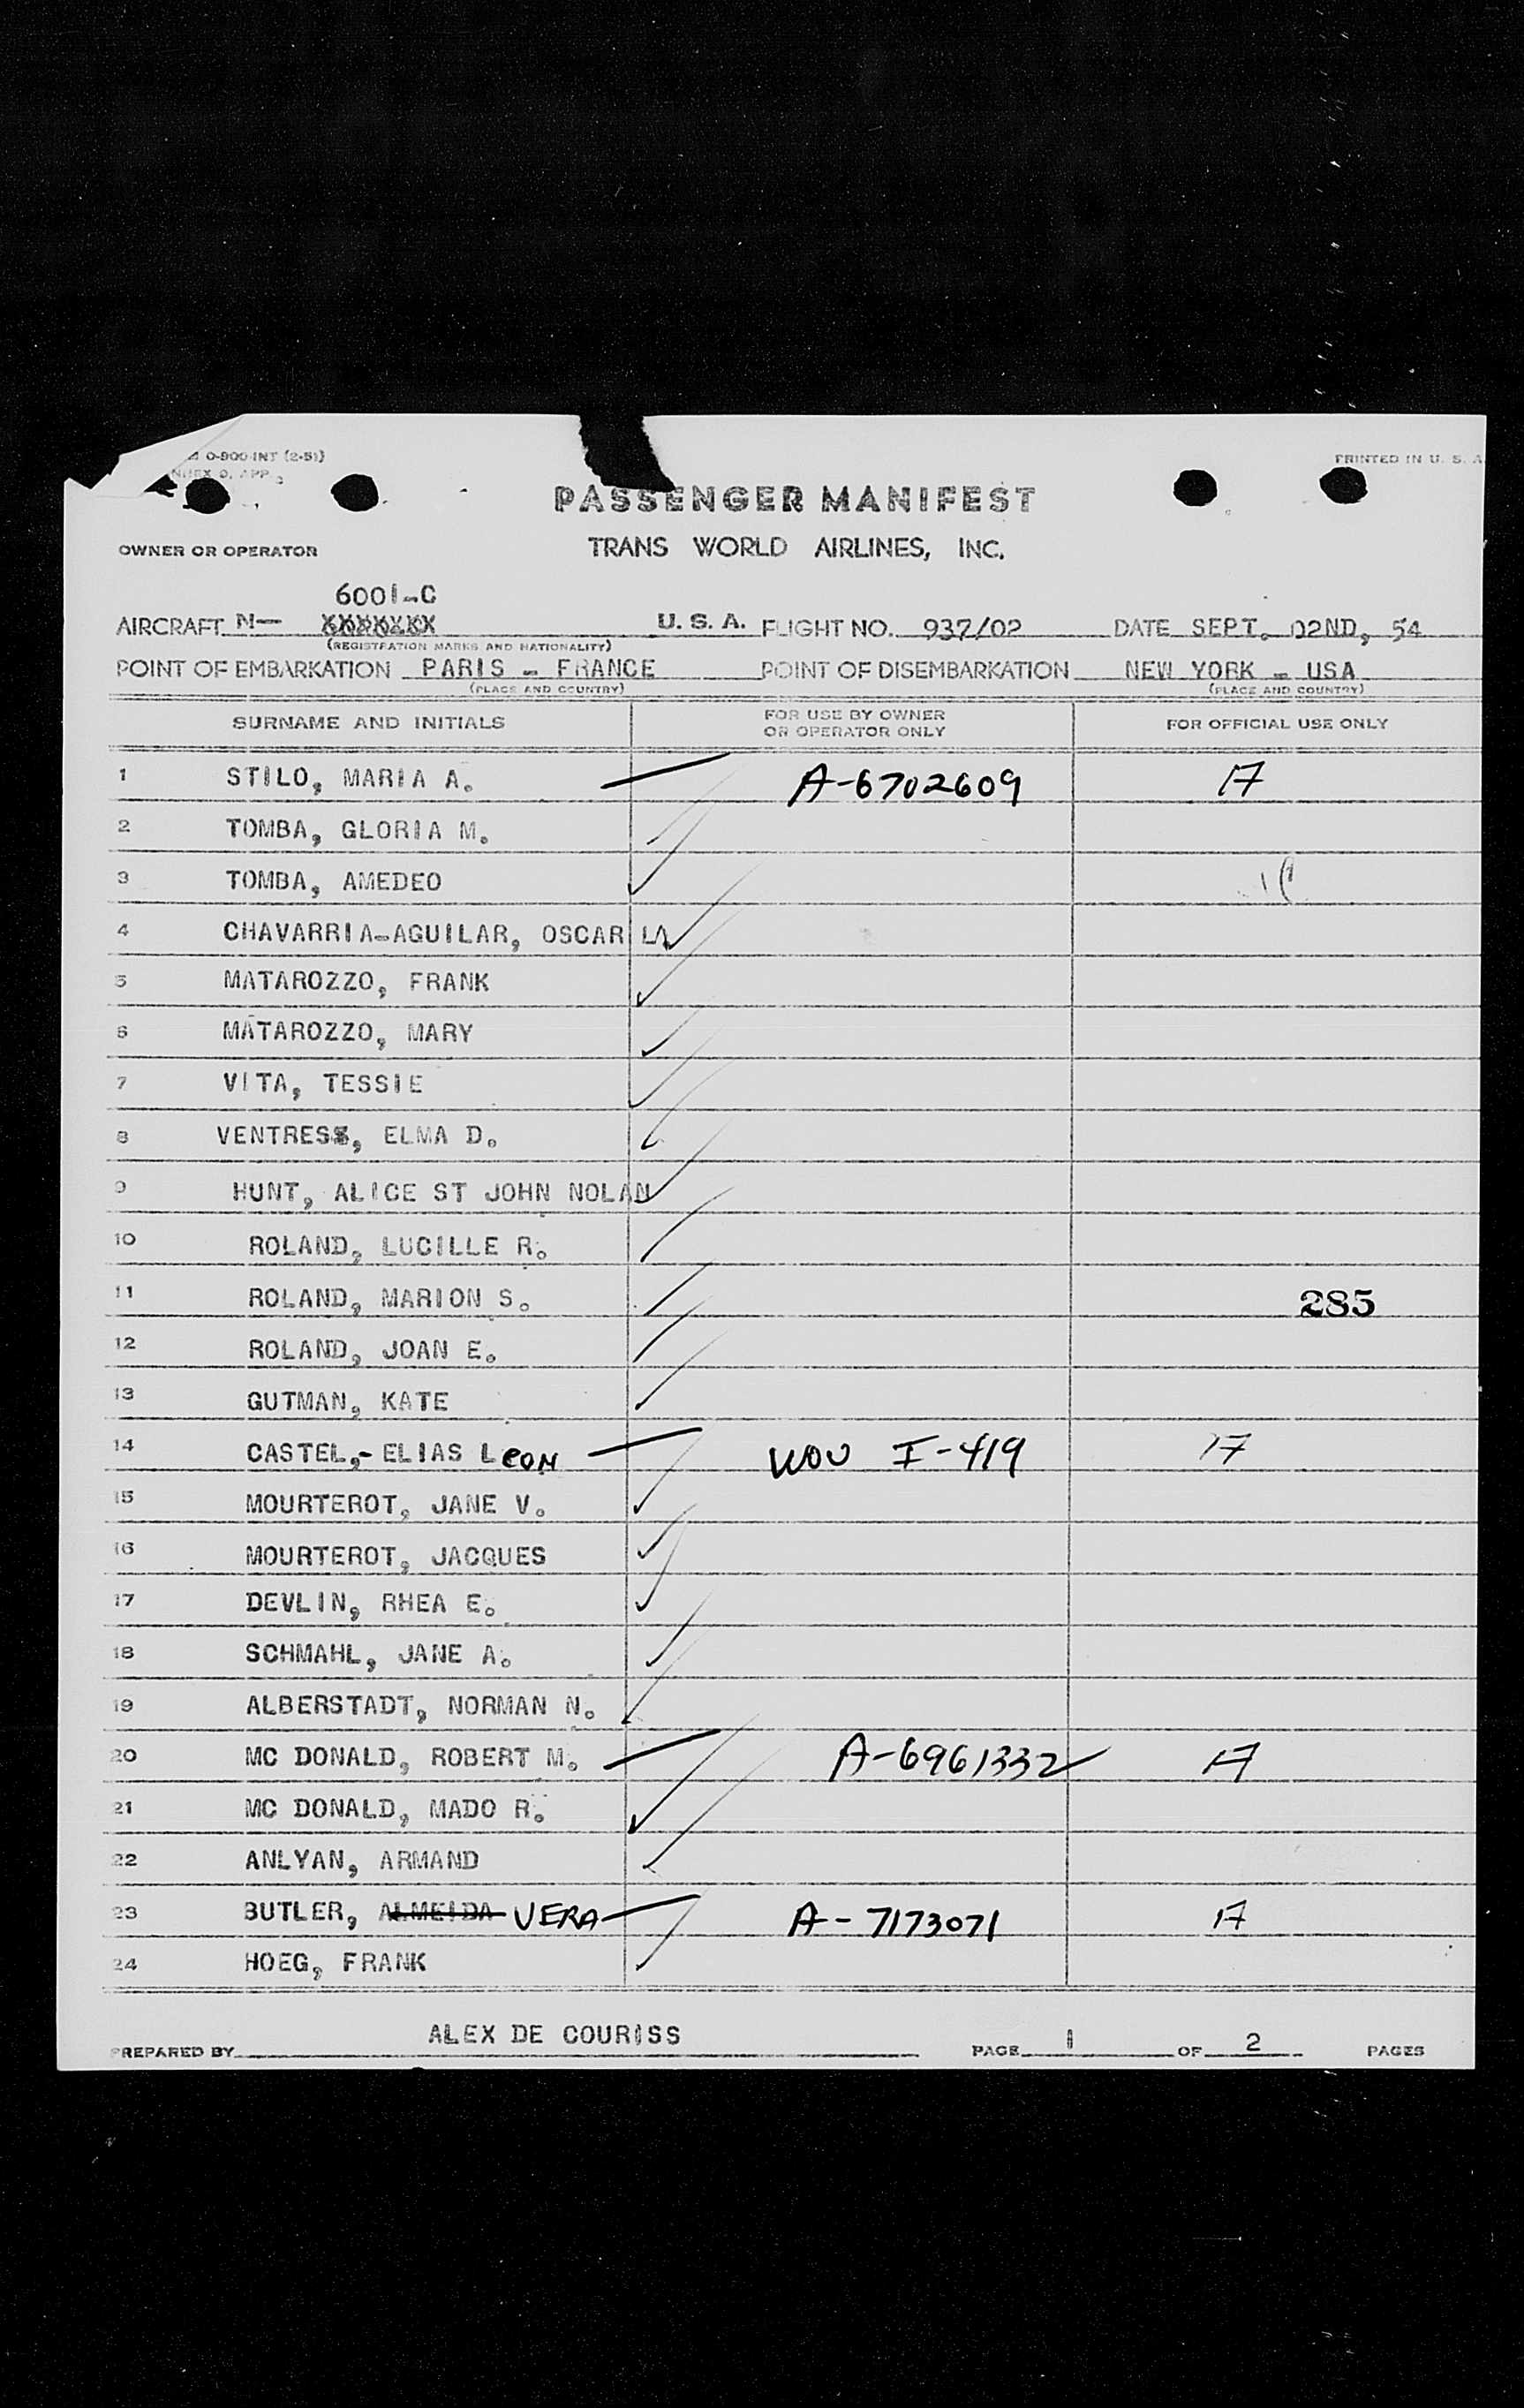 O-900-INT (2-51)
PRINTED IN U. S. A.
PASSENGER MANIFEST
OWNER OR OPERATOR TRANS WORLD AIRLINES, INC.
6001-C
AIRCRAFT N— U. S. A. FLIGHT NO. 937/02 DATE SEPT. 02ND, 54
(REGISTRATION MARKS AND NATIONALITY)
POINT OF EMBARKATION PARIS - FRANCE POINT OF DISEMBARKATION NEW YORK - USA
(PLACE AND COUNTRY) (PLACE AND COUNTRY)
SURNAME AND INITIALS FOR USE BY OWNER OR OPERATOR ONLY FOR OFFICIAL USE ONLY
1 STILO, MARIA A. A-6702609 17
2 TOMBA, GLORIA M.
3 TOMBA, AMEDEO
4 CHAVARRIA-AGUILAR, OSCAR L
5 MATAROZZO, FRANK
6 MATAROZZO, MARY
7 VITA, TESSIE
8 VENTRESS, ELMA D.
9 HUNT, ALICE ST JOHN NOLAN
10 ROLAND, LUCILLE R.
11 ROLAND, MARION S. 285
12 ROLAND, JOAN E.
13 GUTMAN, KATE
14 CASTEL,- ELIAS LEON WOV I-419 17
15 MOURTEROT, JANE V.
16 MOURTEROT, JACQUES
17 DEVLIN, RHEA E.
18 SCHMAHL, JANE A.
19 ALBERSTADT, NORMAN N.
20 MC DONALD, ROBERT M. A-6961332 17
21 MC DONALD, MADO R.
22 ANLYAN, ARMAND
23 BUTLER, ALMEIDA VERA A-7173071 17
24 HOEG, FRANK
PREPARED BY ALEX DE COURISS PAGE 1 OF 2 PAGES